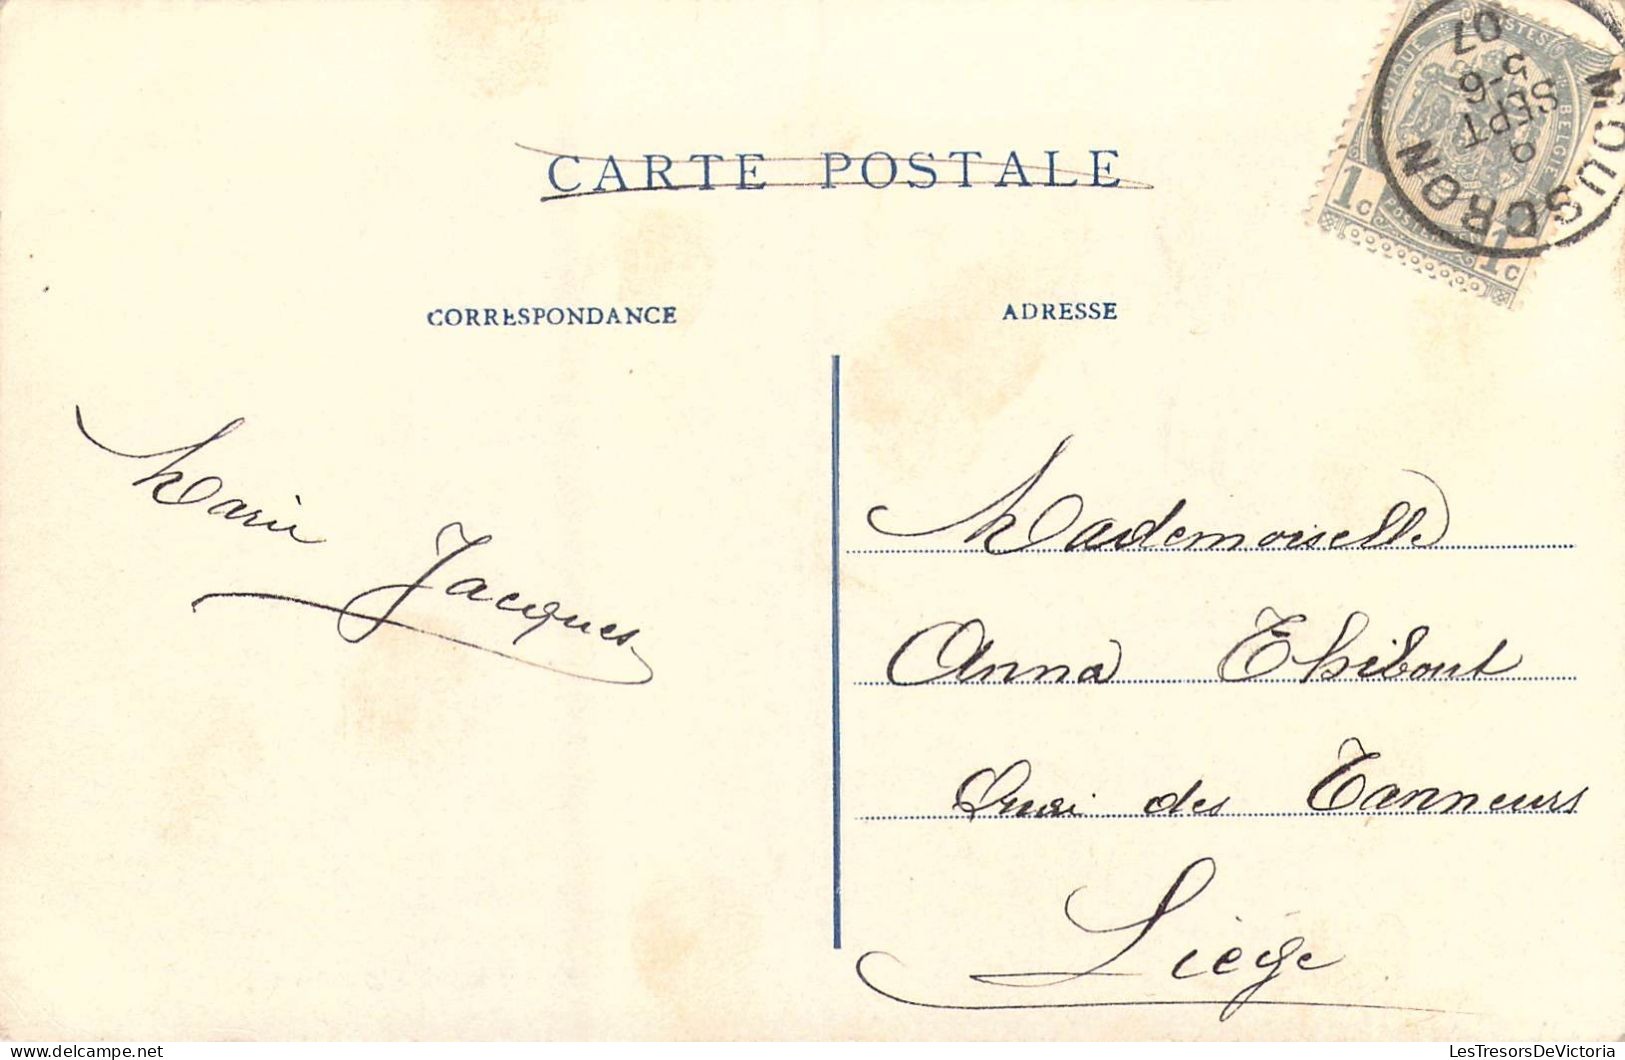 CARTE POSTALE
BELGIQUE POSTES BELGIË
POSTERIJEN
1c 1c
MOUSCRON
9
SEPT
5-6
07
CORRESPONDANCE
ADRESSE
Marie
Jacques
Mademoiselle
Anna Thibout
Quai des Tanneurs
Liège
LesTresorsDeVictoria